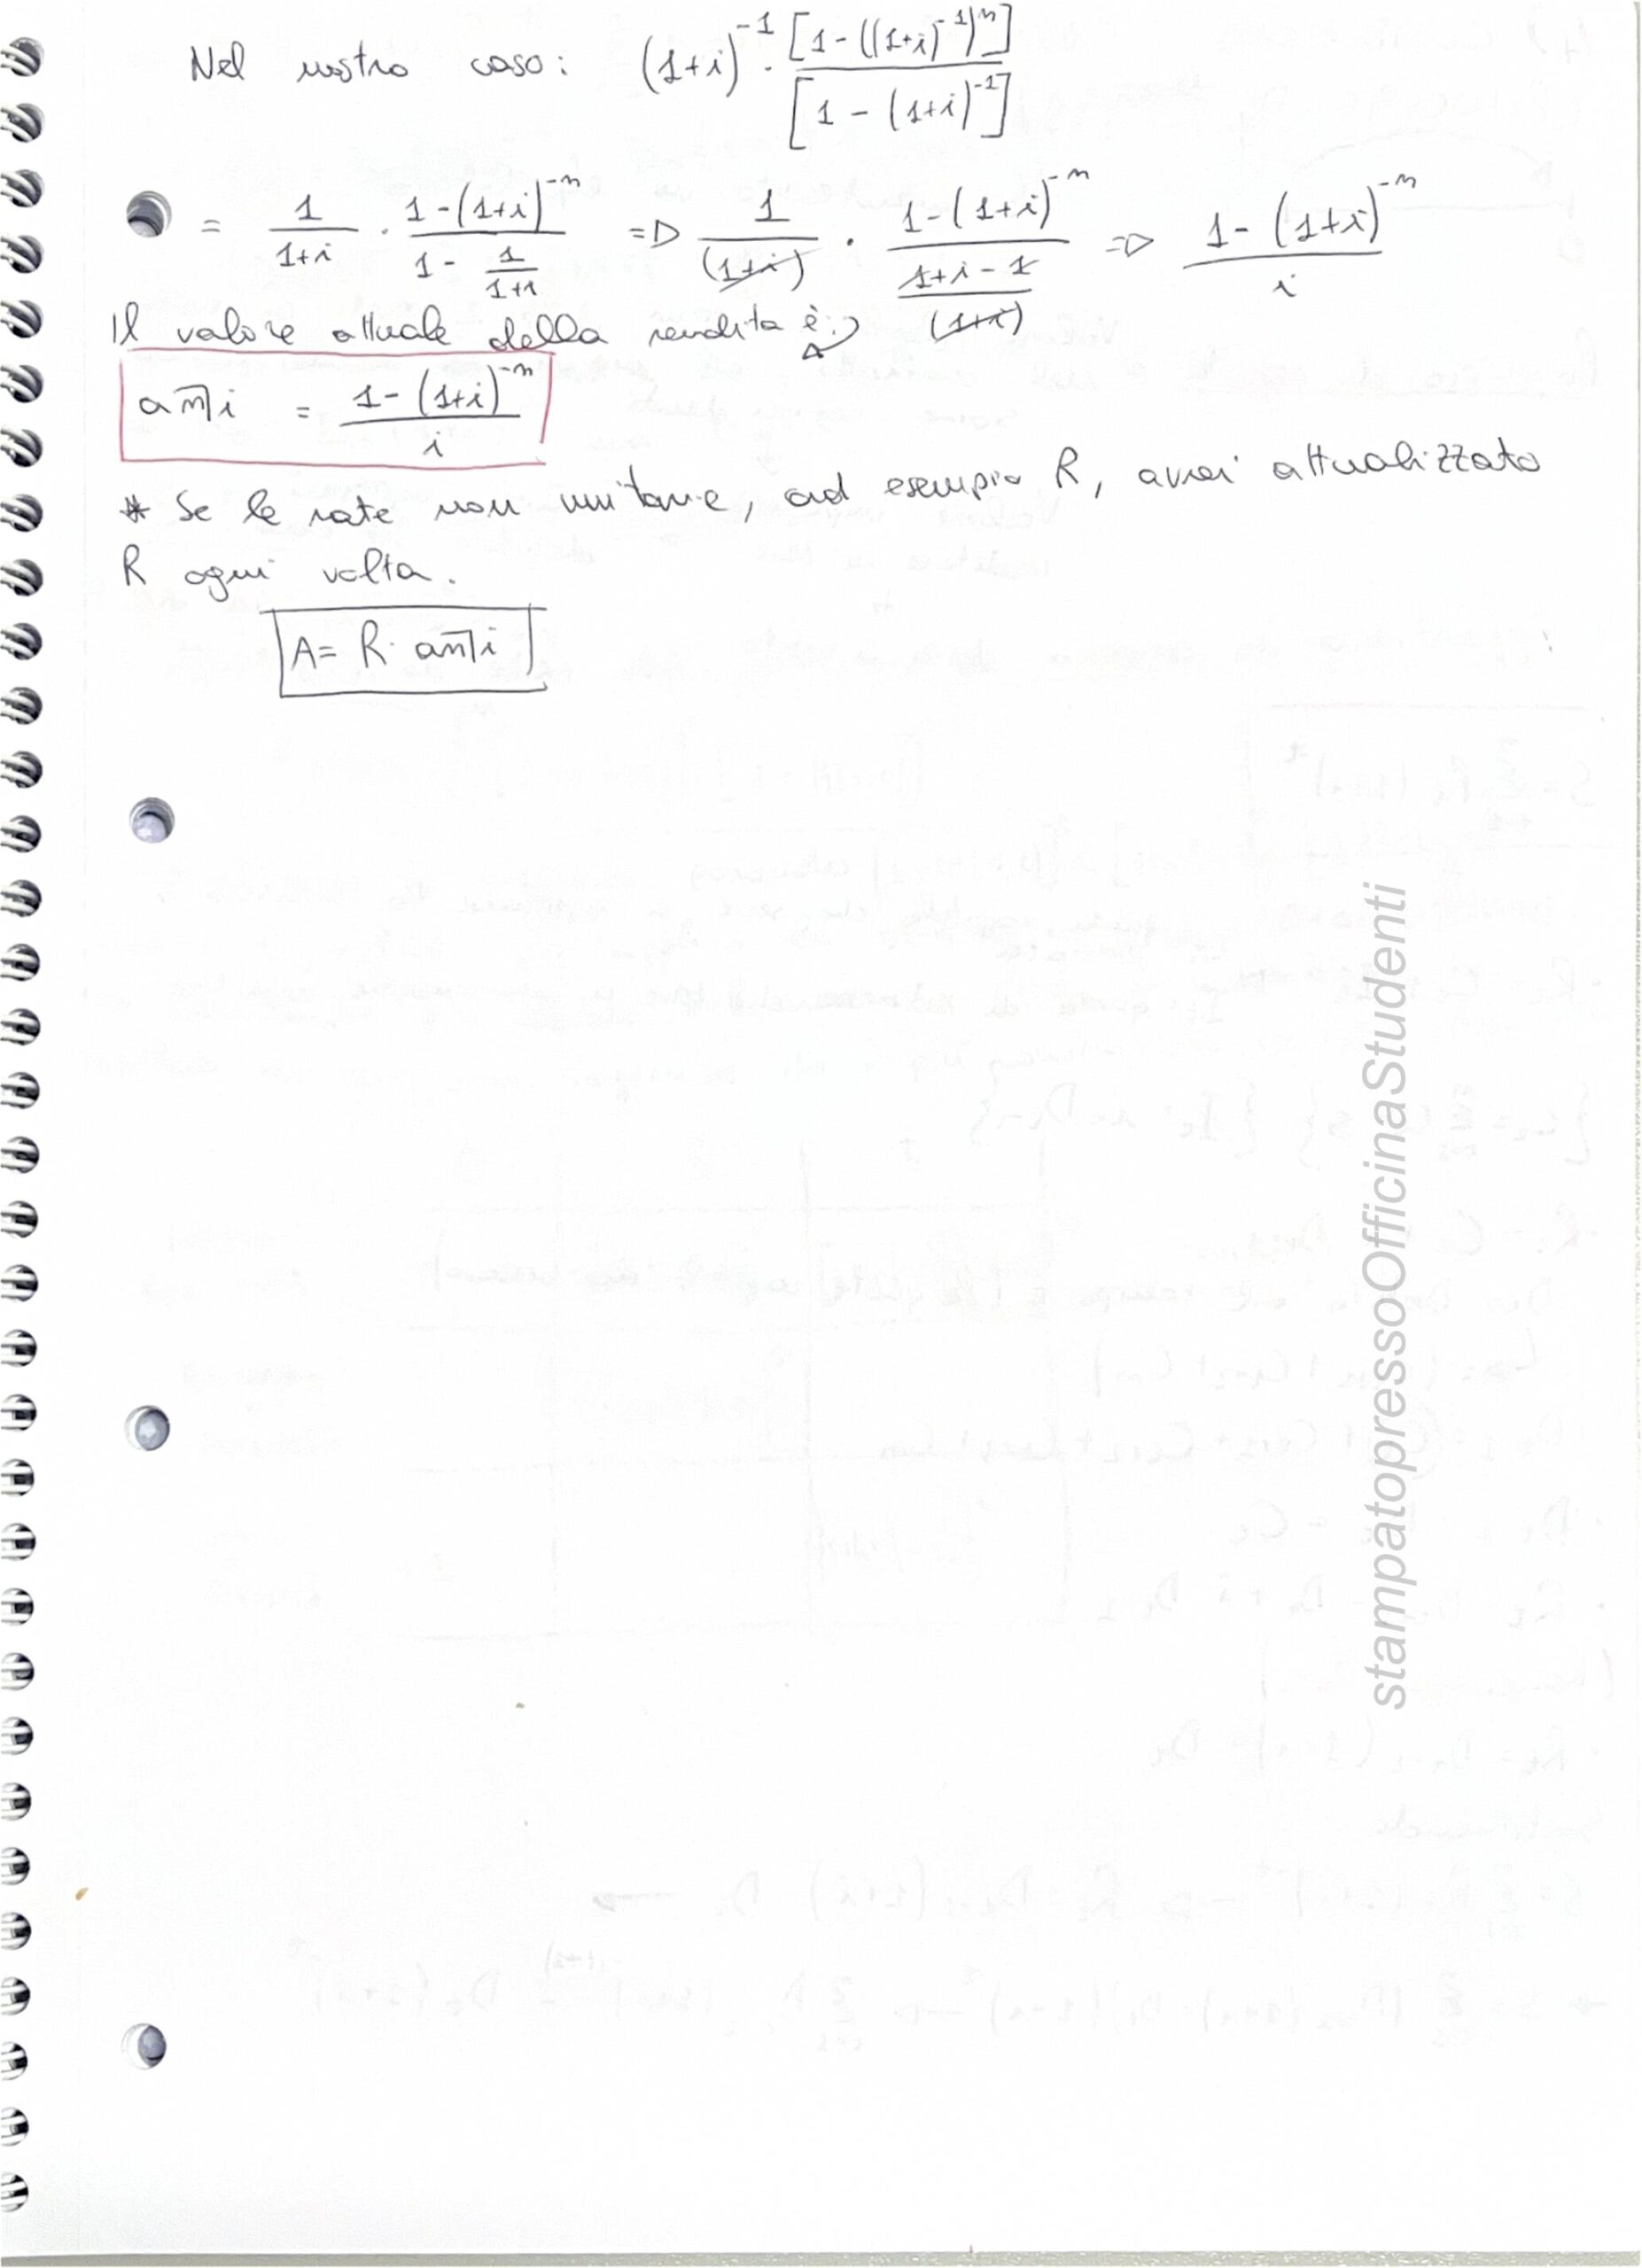 Nel nostro caso: (1+i)^-1 · [1-((1+i)^-1)^n] / [1-(1+i)^-1]
= 1/(1+i) · (1-(1+i)^-n) / (1 - 1/(1+i)) => 1/(1+i) · (1-(1+i)^-n) / ((1+i-1)/(1+i)) => (1-(1+i)^-n) / i
Il valore attuale della rendita è:
a n̅| i = (1-(1+i)^-n) / i
* Se le rate non unitarie, ad esempio R, avrei attualizzato
R ogni volta.
A = R · a n̅| i
stampatopressoOfficinaStudenti